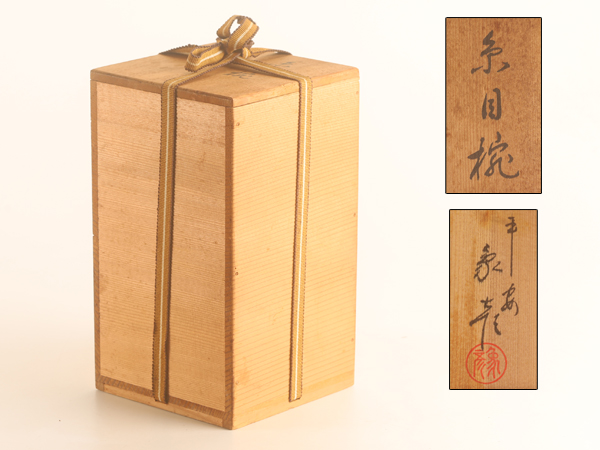 糸目椀
平安
象彦